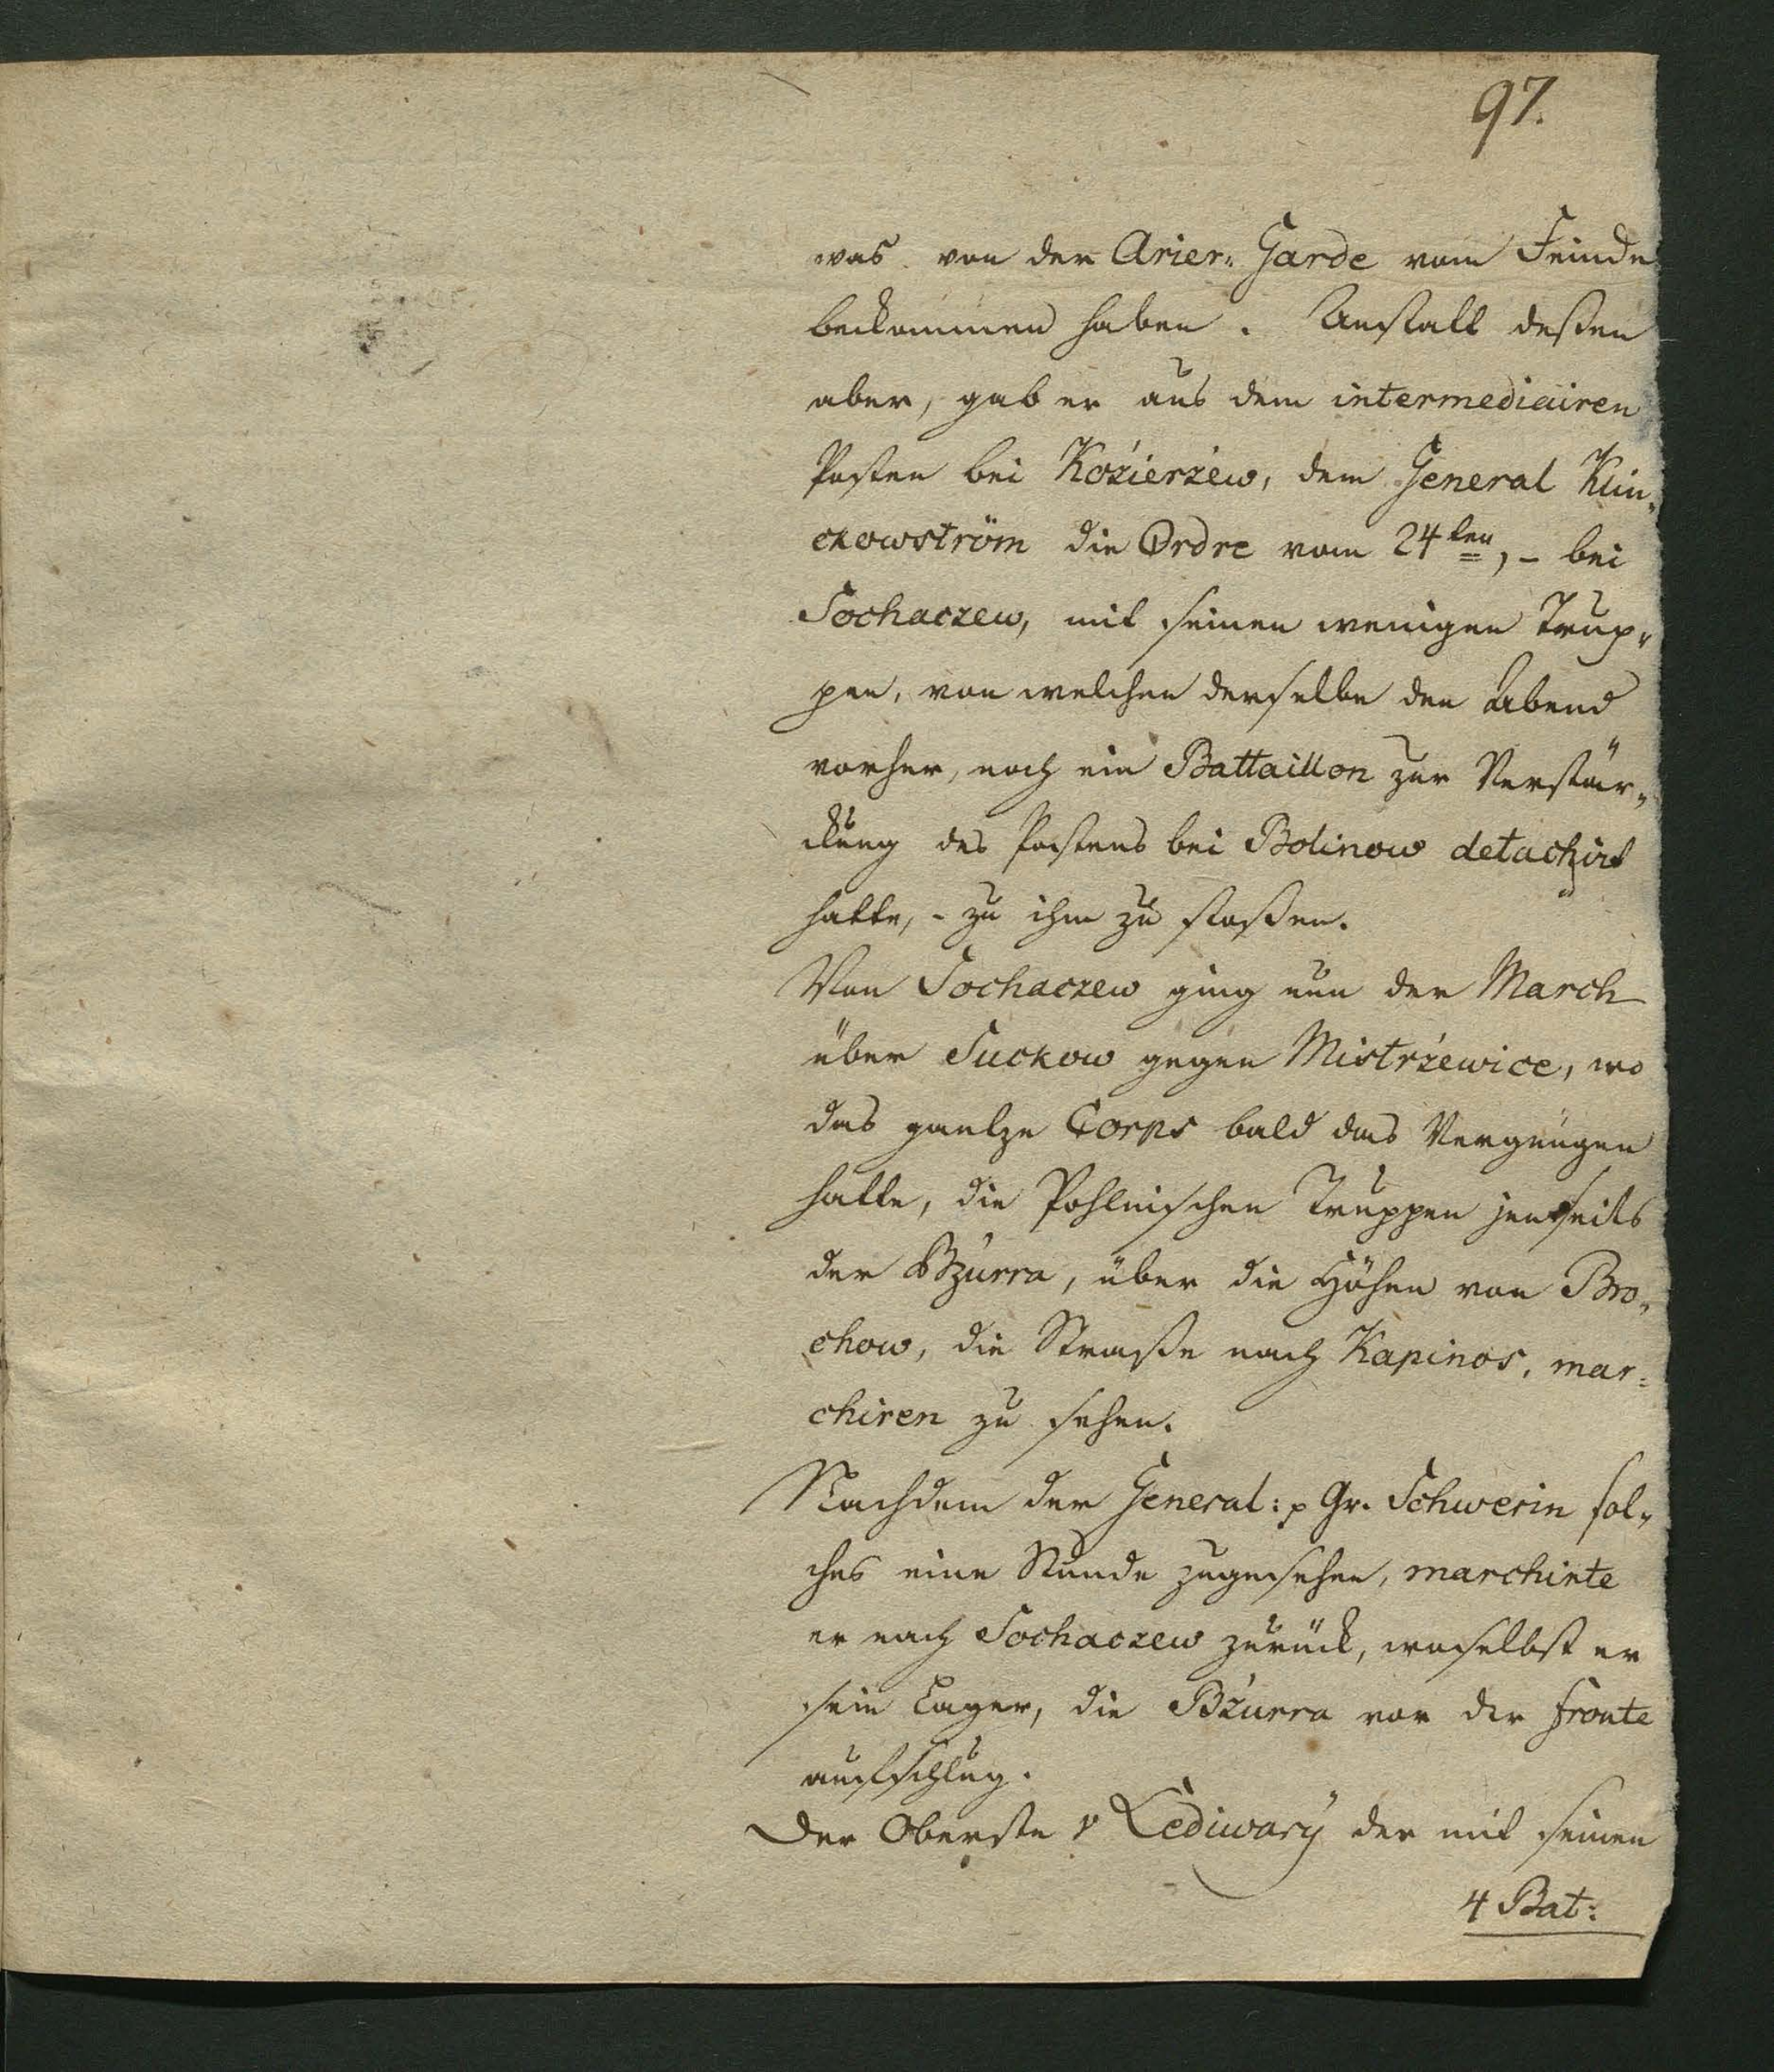 97.
was von der Arier„ Garde vom Feinde
bekommen haben. Anstatt deßen
aber, gab er aus dem intermediairen
Posten bei Kozierzew, dem General Klin„
ckowström die Ordre vom 24ten, – bei
Sochaczew, mit seinen wenigen Trup„
pen, von welchen derselbe den Abend
vorher, noch ein Battaillon zur Verstär„
kung des Postens bei Bolinow detachirt
hatte, – zu ihm zu stoßen.
Von Sochaczew ging nun der March
über Suckow gegen Mistrzewice, wo
das gantze Corps bald das Vergnügen
hatte, die Pohlnischen Truppen jenseits
der Bzurra, über die Höhen von Bro„
chow, die Straße nach Kapinos, mar=
chiren zu sehen.
Nachdem der General: p Gr. Schwerin sol„
ches eine Stunde zugesehen, marchirte
er nach Sochaczew zurück, woselbst er
sein Lager, die Bzurra vor der Fronte
aufschlug.
Der Oberste v Lediwary der mit seinen
4 Bat: